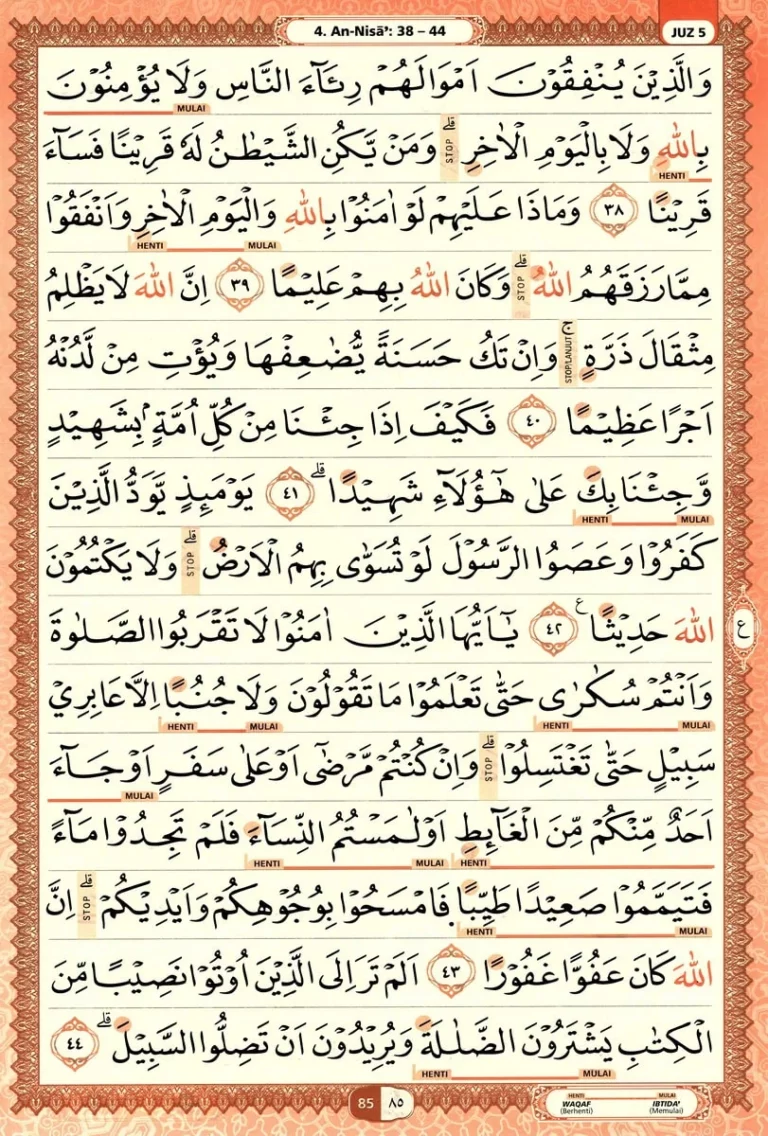 4. An-Nisā': 38 – 44
JUZ 5
وَالَّذِيْنَ يُنْفِقُوْنَ اَمْوَالَهُمْ رِئَآءَ النَّاسِ وَلَا يُؤْمِنُوْنَ
MULAI
بِاللّٰهِ وَلَا بِالْيَوْمِ الْاٰخِرِ ۗ وَمَنْ يَّكُنِ الشَّيْطٰنُ لَهٗ قَرِيْنًا فَسَاۤءَ
STOP
HENTI
قَرِيْنًا ٣٨ وَمَاذَا عَلَيْهِمْ لَوْ اٰمَنُوْا بِاللّٰهِ وَالْيَوْمِ الْاٰخِرِ وَاَنْفَقُوْا
MULAI HENTI
مِمَّا رَزَقَهُمُ اللّٰهُ ۗ وَكَانَ اللّٰهُ بِهِمْ عَلِيْمًا ٣٩ اِنَّ اللّٰهَ لَا يَظْلِمُ
STOP
مِثْقَالَ ذَرَّةٍ ۚ وَاِنْ تَكُ حَسَنَةً يُّضٰعِفْهَا وَيُؤْتِ مِنْ لَّدُنْهُ
STOP/LANJUT
اَجْرًا عَظِيْمًا ٤٠ فَكَيْفَ اِذَا جِئْنَا مِنْ كُلِّ اُمَّةٍ ۢ بِشَهِيْدٍ
وَّجِئْنَا بِكَ عَلٰى هٰٓؤُلَاۤءِ شَهِيْدًا ۗ ٤١ يَوْمَئِذٍ يَّوَدُّ الَّذِيْنَ
MULAI HENTI
كَفَرُوْا وَعَصَوُا الرَّسُوْلَ لَوْ تُسَوّٰى بِهِمُ الْاَرْضُ ۗ وَلَا يَكْتُمُوْنَ
STOP
اللّٰهَ حَدِيْثًا ࣖ ٤٢ يٰٓاَيُّهَا الَّذِيْنَ اٰمَنُوْا لَا تَقْرَبُوا الصَّلٰوةَ
ع
وَاَنْتُمْ سُكٰرٰى حَتّٰى تَعْلَمُوْا مَا تَقُوْلُوْنَ وَلَا جُنُبًا اِلَّا عَابِرِيْ
MULAI HENTI MULAI HENTI
سَبِيْلٍ حَتّٰى تَغْتَسِلُوْا ۗ وَاِنْ كُنْتُمْ مَّرْضٰٓى اَوْ عَلٰى سَفَرٍ اَوْ جَاۤءَ
STOP
MULAI
اَحَدٌ مِّنْكُمْ مِّنَ الْغَاۤىِٕطِ اَوْ لٰمَسْتُمُ النِّسَاۤءَ فَلَمْ تَجِدُوْا مَاۤءً
HENTI MULAI HENTI
فَتَيَمَّمُوْا صَعِيْدًا طَيِّبًا فَامْسَحُوْا بِوُجُوْهِكُمْ وَاَيْدِيْكُمْ ۗ اِنَّ
STOP
MULAI HENTI
اللّٰهَ كَانَ عَفُوًّا غَفُوْرًا ٤٣ اَلَمْ تَرَ اِلَى الَّذِيْنَ اُوْتُوْا نَصِيْبًا مِّنَ
الْكِتٰبِ يَشْتَرُوْنَ الضَّلٰلَةَ وَيُرِيْدُوْنَ اَنْ تَضِلُّوا السَّبِيْلَ ۗ ٤٤
MULAI HENTI
85 ٨٥
HENTI MULAI
WAQAF IBTIDA'
(Berhenti) (Memulai)